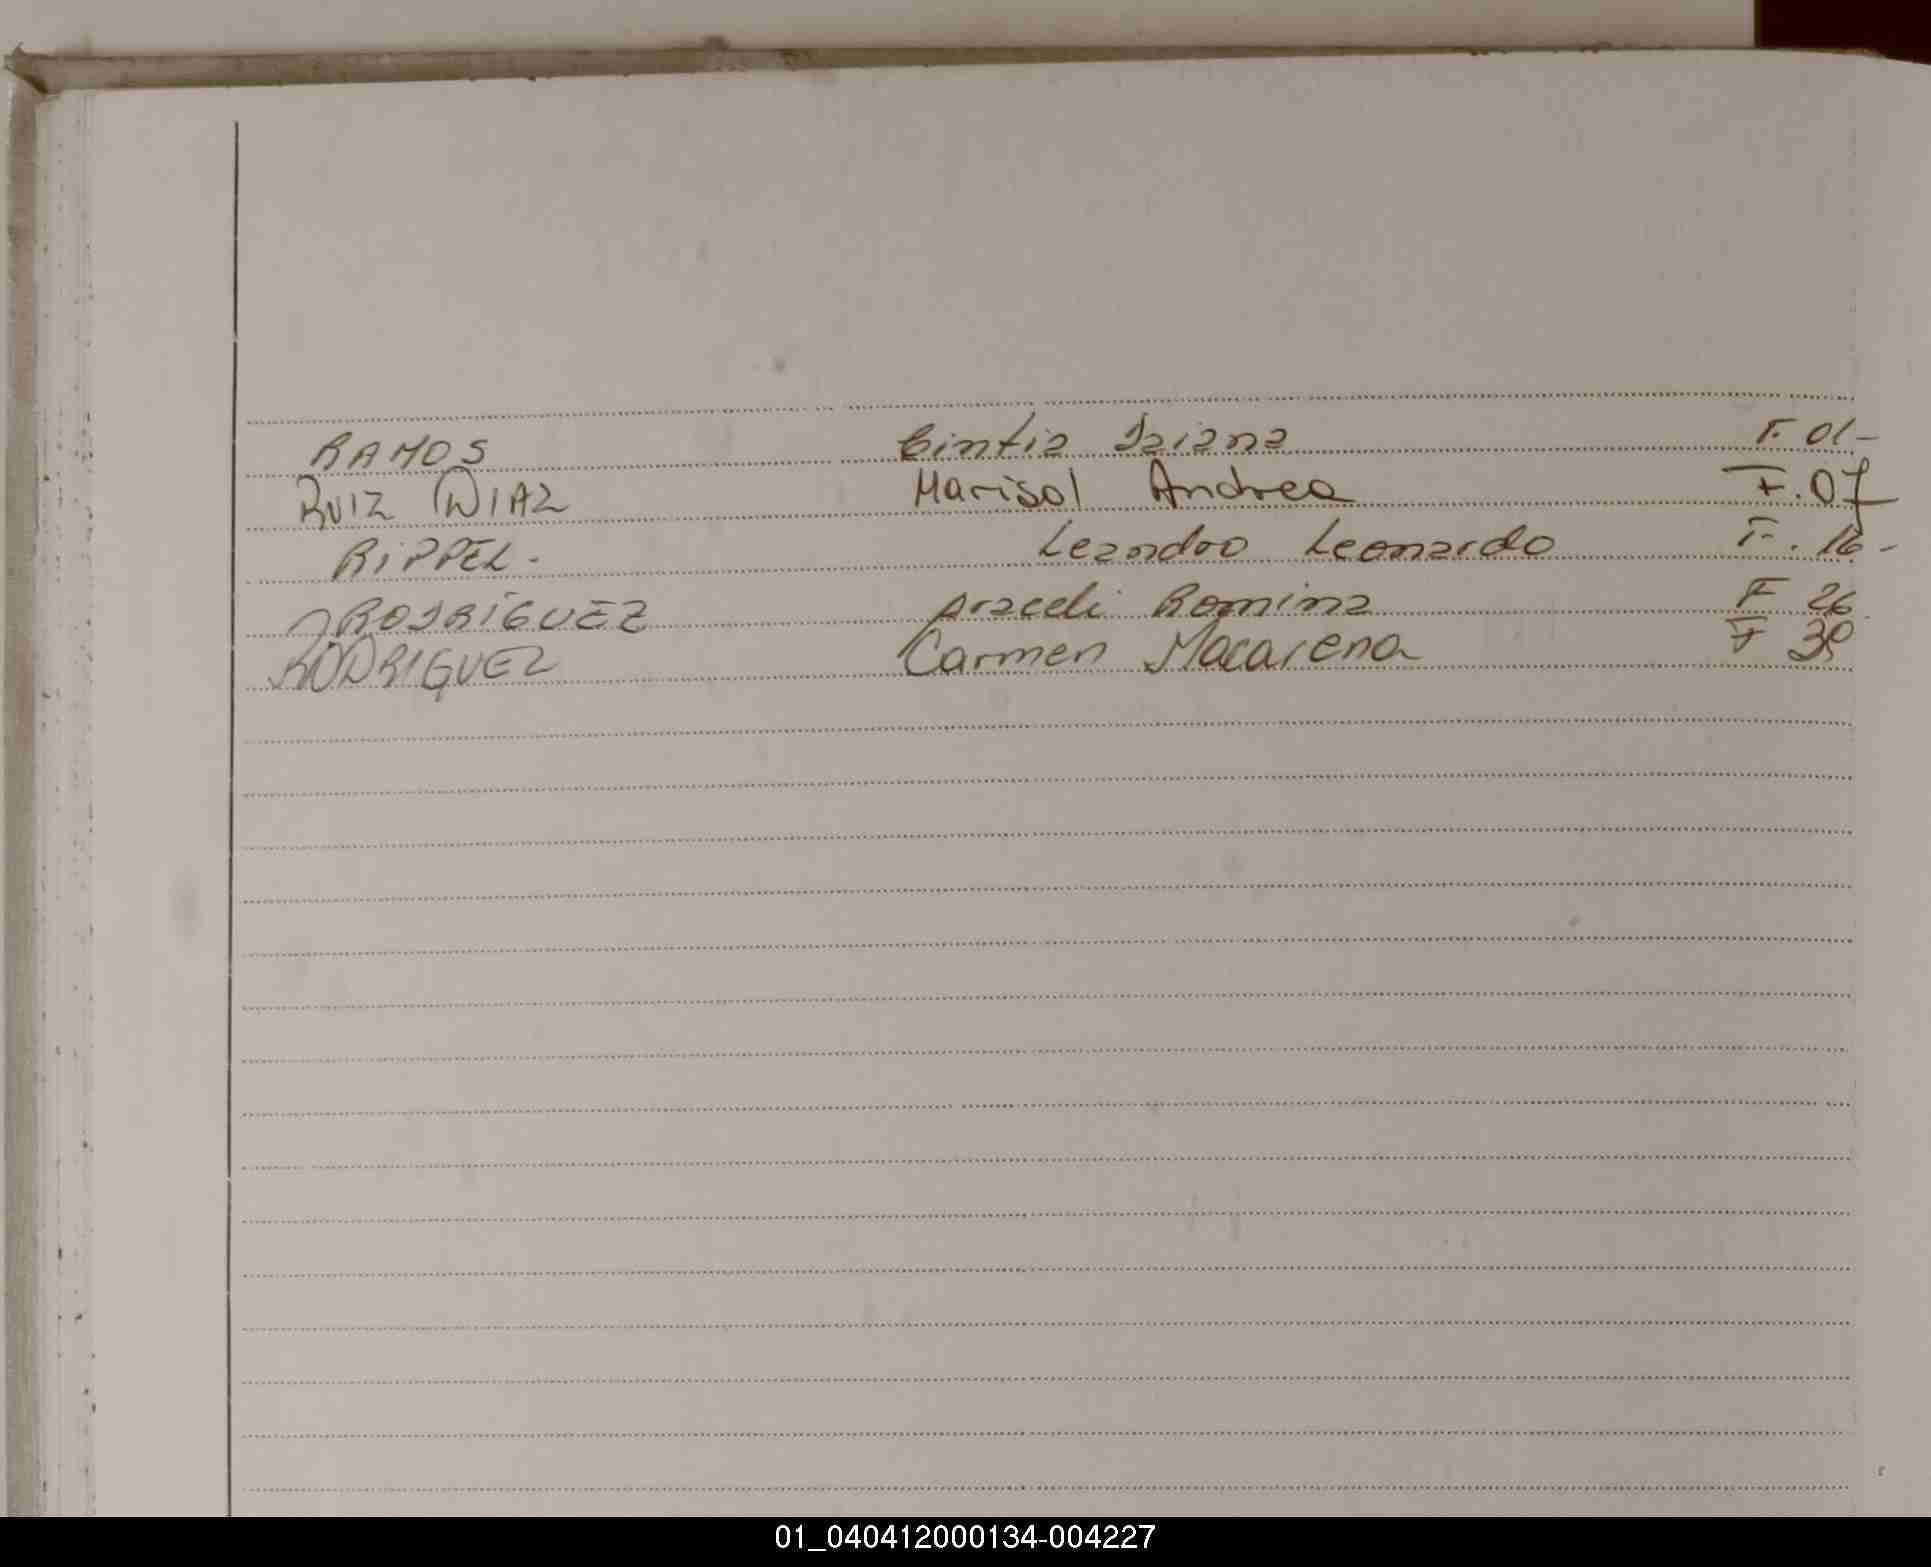 RAMOS Cintia Daiana F. 01-
RUIZ DIAZ Marisol Andrea F. 07
RIPPEL. Leandro Leonardo F. 16-
RODRÍGUEZ Araceli Romina F 26
RODRIGUEZ Carmen Macarena F
01_040412000134-004227